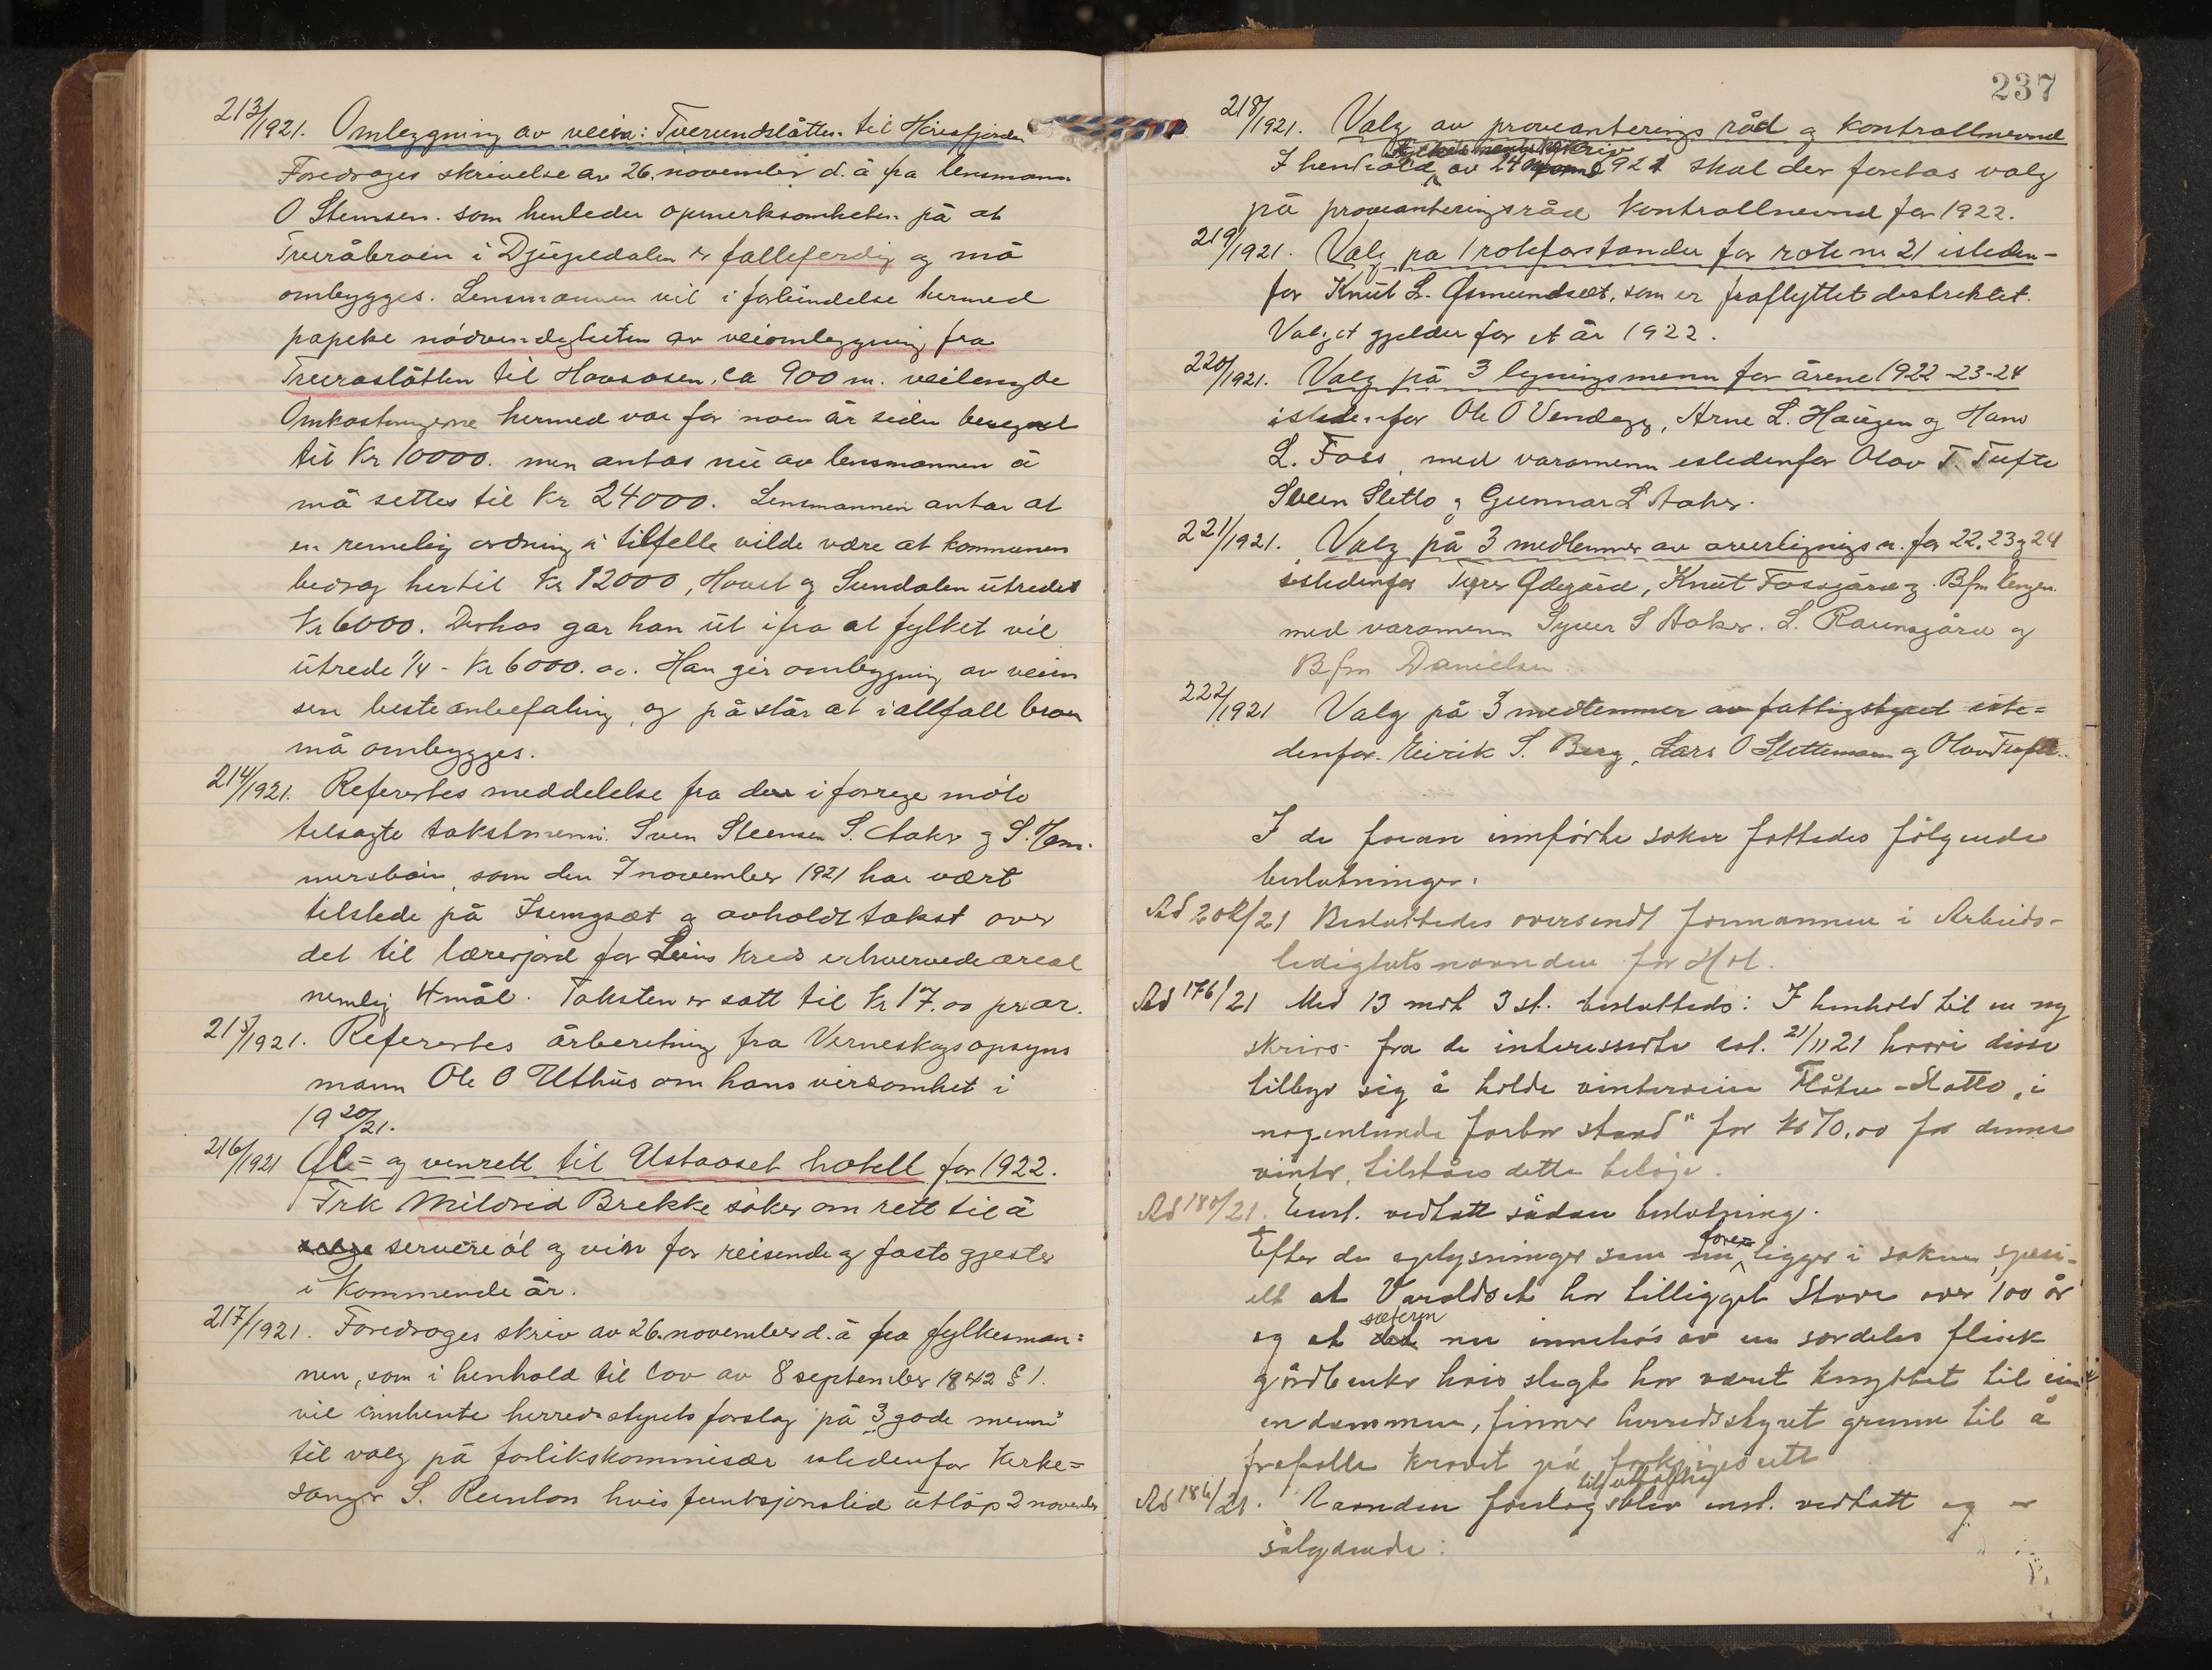 213/1921. Omlegning av veien: Tverrundslåtten til Hivsfjorden
Foredroges skrivelse av 26. november d. å fra lensmann
O Stensen. som henleder opmerksomheten på at
Truråbroen i Djupedalen er falleferdig og må
ombygges. Lensmannen vil i forbindelse hermed
papeke nödvendigheten av veiomlegning fra
Truraslåtten til Hovsåsen, ca 900 m. veilengde
Omkostningerne hermed var for noen år siden beregnet
til Kr 10000. men antas nu av lensmannen å
må settes til Kr 24000. Lensmannen antar at
en rimelig ordning i tilfelle vilde være at kommunen
bedrog hertil Kr 12000, Hovet og Sundalen utredet
Kr 6000. Derhos gar han ut ifra at fylket vil
utrede 1/4 - Kr 6000. oo. Han gir ombygging av veien
sin beste anbefaling, og påstår at i allfall broen
må ombygges.
214/1921. Referertes meddelelse fra de i forrige möte
tilsagte takstmenn. Sven Steensen S. Aaker og S. Tøm-
mersboin, som den 7 november 1921 har vært
tilstede på Isungset og avholdt takst over
det til lærerjord for Leins kreds erhvervede areal
nemlig 4 mål. Taksten er satt til Kr 17.00 pr ar.
215/1921. Referertes årberetning fra Verneskogsopsyns
mann Ole O Uthus om hans virksomhet i
1920/21.
216/1921 Öl= og vinrett til Ustaoset hotell for 1922.
Frk Mildrid Brekke söker om rett til å
selge servere öl og vin for reisende og faste gjester
i kommende år.
217/1921. Foredroges skriv av 26. november d. å fra fylkesman=
nen, som i henhold til lov av 8 september 1842 § 1.
vil innhente herredsstyrets forslag på "3 gode menn"
til valg på forlikskommisær istedenfor Kirke=
sanger S. Reinton hvis funksjonstid utlöp 2 november
237
218/1921. Valg av provianterings råd og kontrollnevnd
I henhold av 14 1921 skal der foretas valg
på provianteringsråd kontrollnevnd for 1922.
219/1921. Valg på 1 roteforstander for rote nr 21 isteden-
for Knut L. Ösmundset, som er fraflyttet distriktet.
Valget gjelder for et år 1922.
220/1921. Valg på 3 ligningsmenn for årene 1922-23-24
istedenfor Ole O Vendegg, Arne L. Haugen og Hans
L. Foss, med varamenn istedenfor Olav T. Tufte
Sveen Sletto og Gunnar L Aaker.
221/1921. Valg på 3 medlemmer av overlignings n. for 22, 23 og 24
istedenfor Tiger Ödegård, Knut Fossgård og Bfm Engen.
med varamenn Syver S Aaker. L. Raunsgård og
Bfm Danielsen
222/1921 Valg på 3 medlemmer av fattigstyret iste=
denfor. Eirik S. Berg, Lars O Slettemoen og Olav Tufte.
I de foran innførte saker fattedes følgende
beslutninger.
Ad 202/21 Besluttedes oversendt formannen i Arbeids-
ledighetsnevnden for Hol.
Ad 176/21 Med 13 mot 3 st. besluttedes: I henhold til en ny
skriv fra de interesserte dat. 21/11 21 hvori disse
tilbyr sig å holde vinterveien Flåten - Slatto "i
nogenlunde farbar stand" for kr 70,00 for denne
vinter, tilståes dette beløp.
Ad 180/21. Enst. vedtatt sådan beslutning.
Efter de oplysninger som nu foreligger i saken, spesi-
elt at Varaldset har tilligget Stave over 100 år
og at det sæteren nu innehas av en særdeles flink
gårdbruker hvis slegt har været knyttet til ei-
endommen, finner herredsstyret grunn til å
frafalle kravet på forkjøpsrett
Ad 186/21. Nevnden forslag blev enst. vedtatt og er
sålydende: